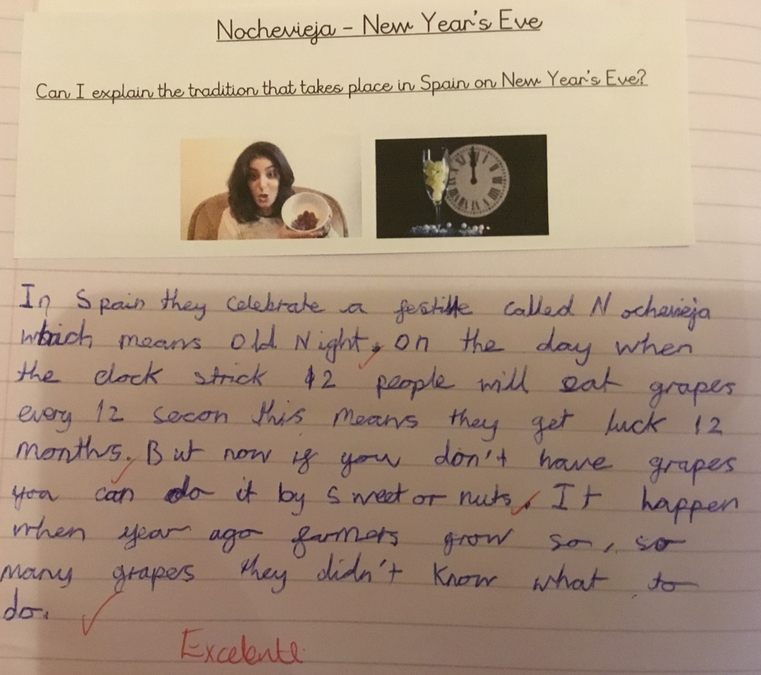 Nochevieja – New Year's Eve
Can I explain the tradition that takes place in Spain on New Year's Eve?
In Spain they celebrate a called Nochevieja
which means Old Night, on the day when
the clock strick 12 people will eat grapes
every 12 secon this means they get luck 12
months. But now if you don't have grapes
you can do it by sweet or nuts. It happen
when year ago farmers grow so, so
many grapes they didn't know what to
do.
Excelente